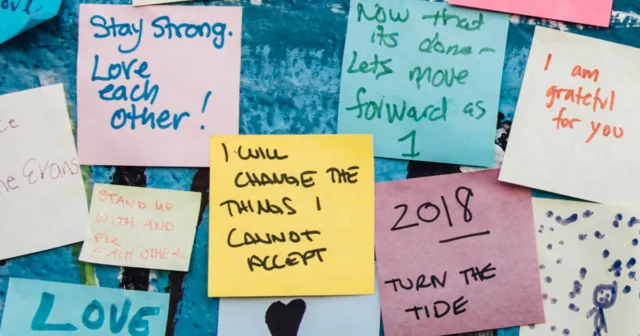 Love
Stay Strong.
Love
each
other!
Now that
its done-
Lets move
forward as
1
I am
grateful
for you
Evans
STAND UP
WITH AND
FOR
EACH OTHER
I WILL
CHANGE THE
THINGS I
CANNOT
ACCEPT
2018
TURN THE
TIDE
LOVE